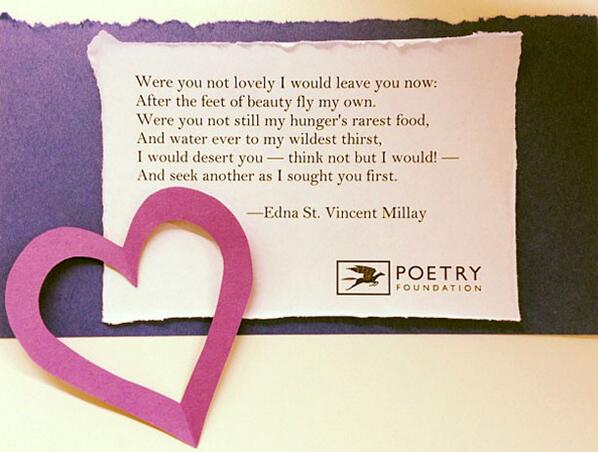 Were you not lovely I would leave you now:
After the feet of beauty fly my own.
Were you not still my hunger's rarest food,
And water ever to my wildest thirst,
I would desert you — think not but I would! —
And seek another as I sought you first.
—Edna St. Vincent Millay
POETRY
FOUNDATION